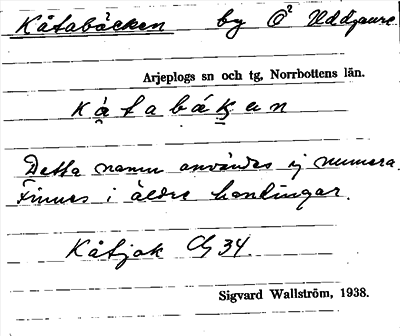 Kåtabäcken by Ö² Uddjaure
Arjeplogs sn och tg, Norrbottens län.
Kåtabäken
Detta namn användes ej numera.
Finnes i äldre handlingar.
Kåtjok 34
Sigvard Wallström, 1938.